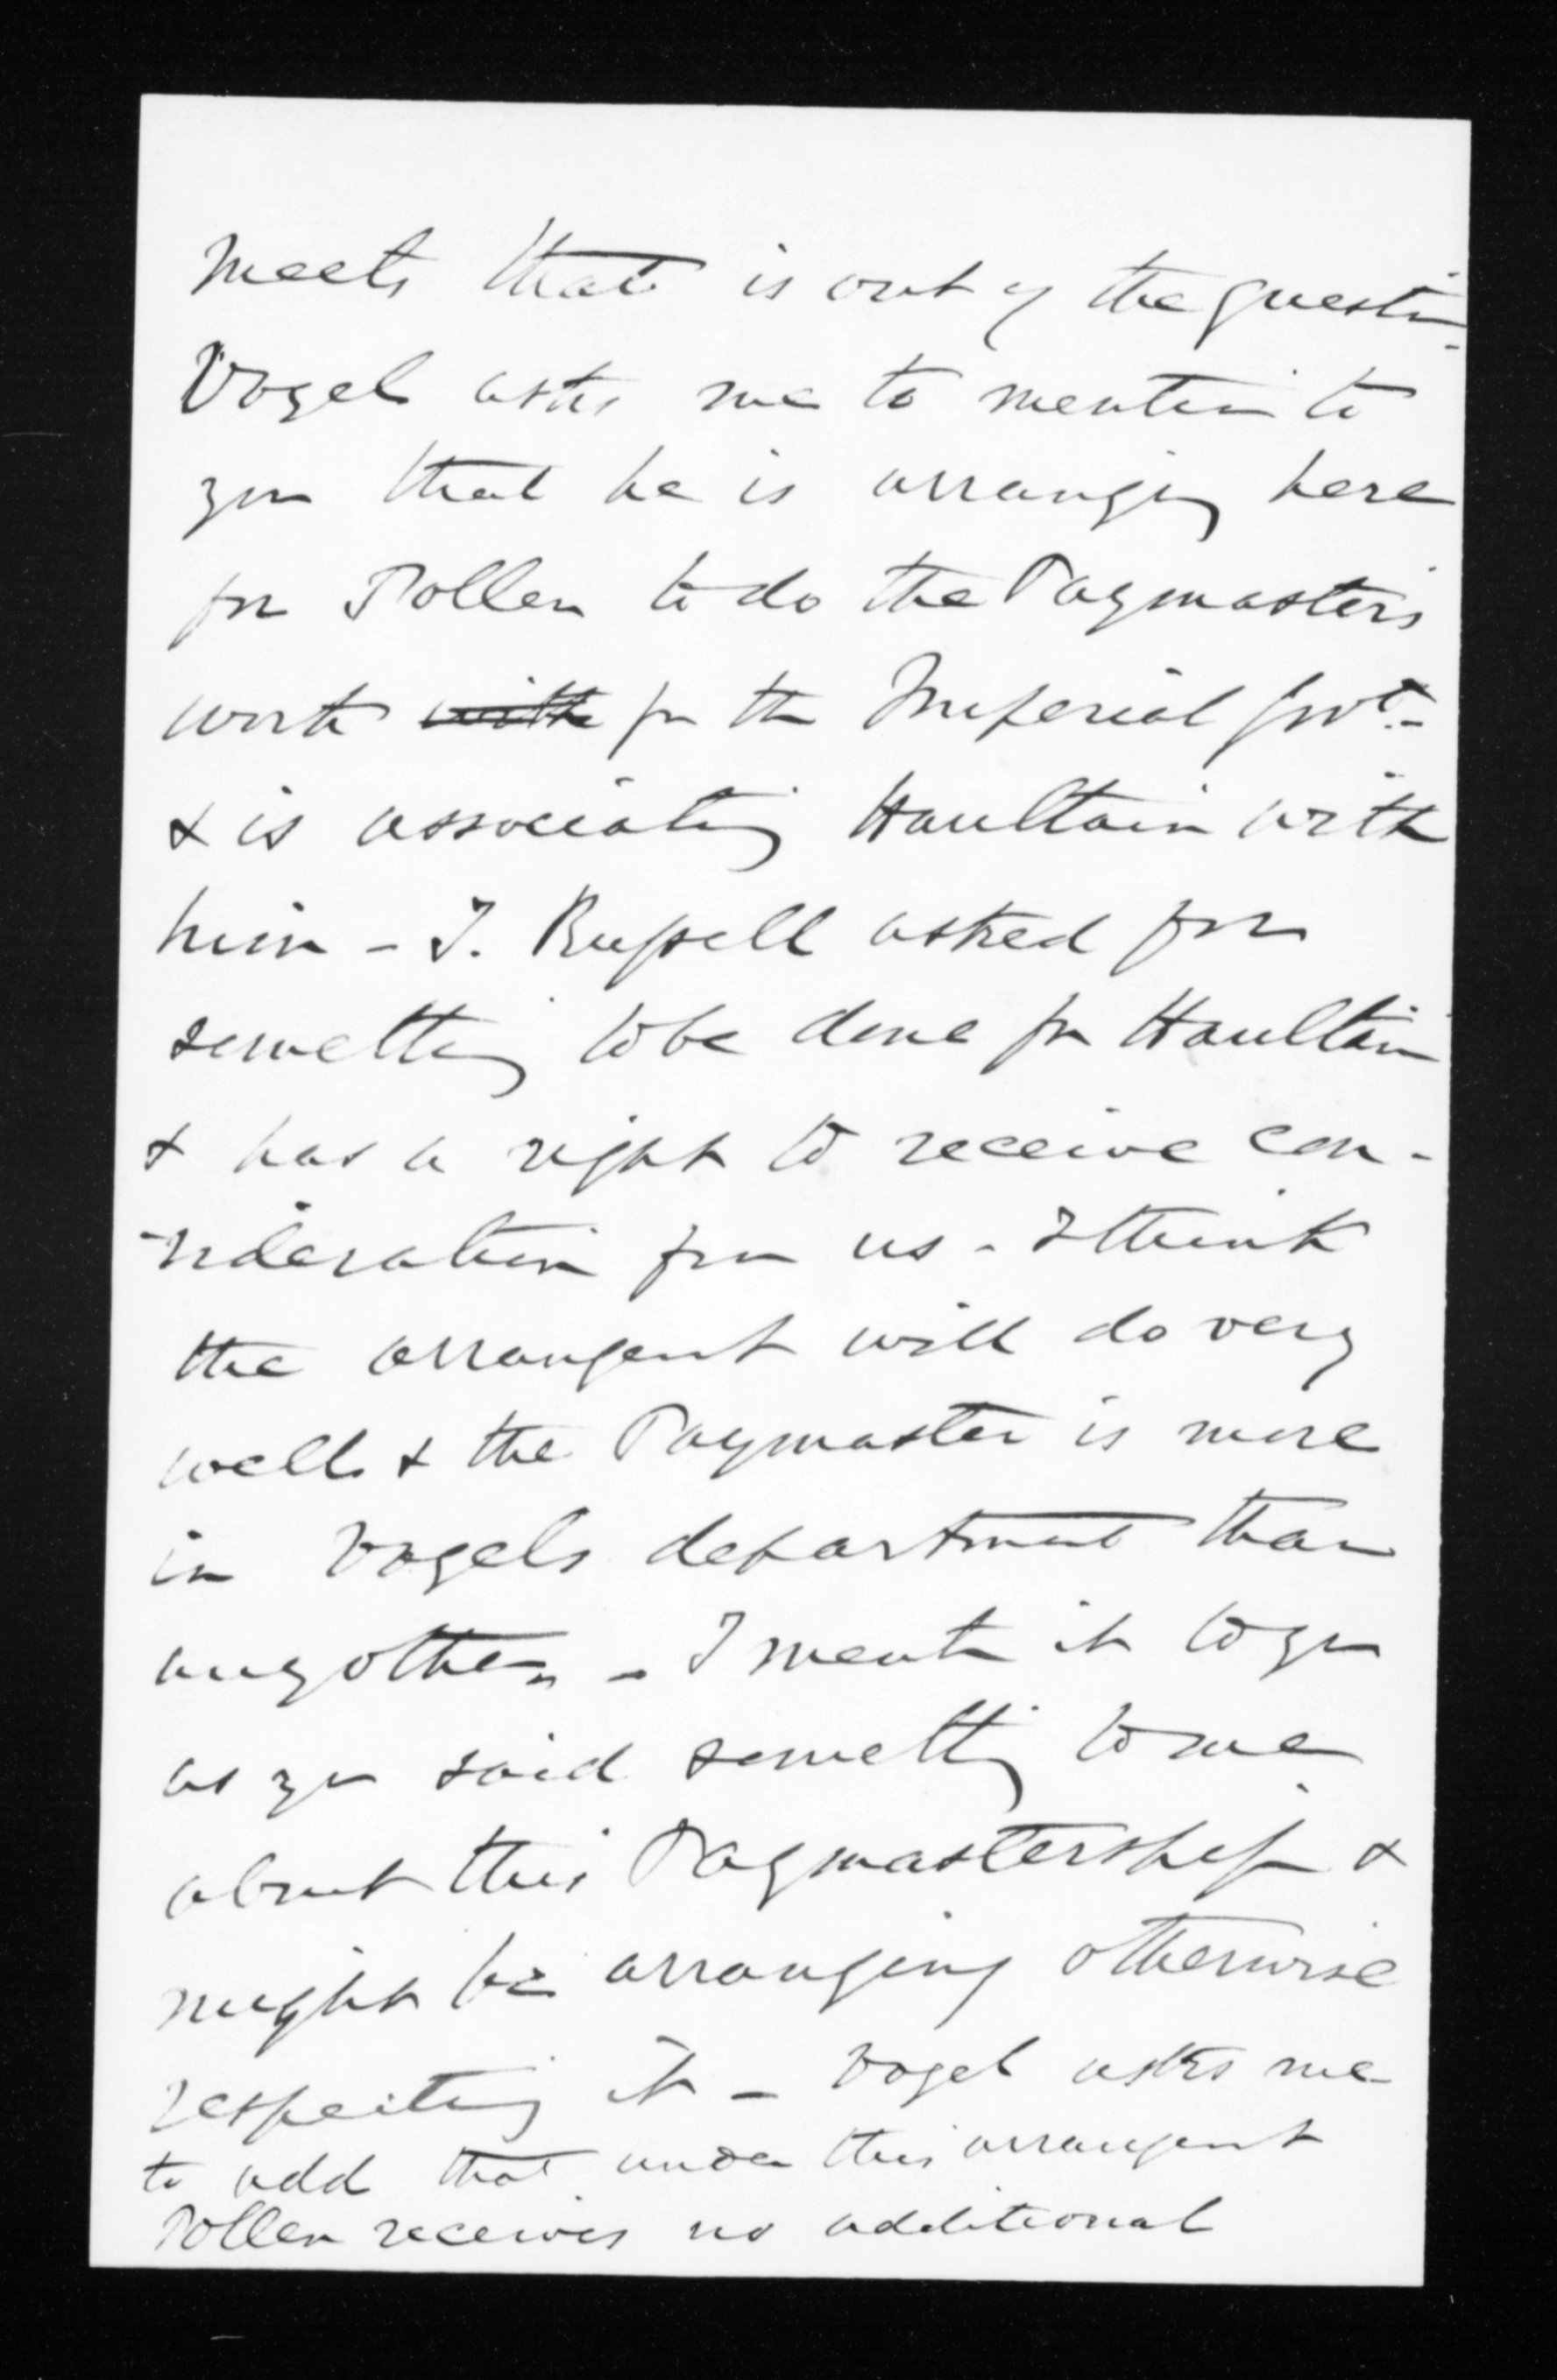 meets that is out of the question
Vogel asks me to mention to
you that he is arranging here
for Pollen to do the Paymasters
work with for the Imperial Govt.
& is associating Haultain with
him - T. Russell asked for
something to be done for Haultain
& has a right to receive con-
-sideration from us - I think
the arrangent will do very
well & the Paymaster is more
in Vogels department than
any other - I mention it to you
as you said something to me
about this Paymastership &
might be arranging otherwise
respecting it - Vogel asks me
to add that under this arrangent
Pollen receives no additional